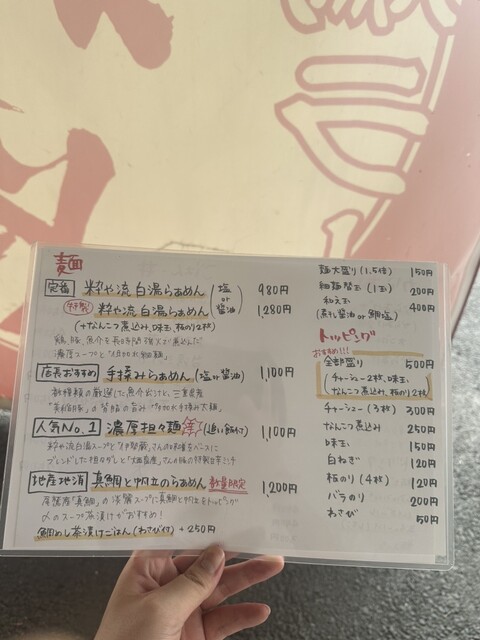 麺
定番 粋や流 白湯らぁめん (塩 or 醤油) 980円
特製 粋や流 白湯らぁめん 1,280円
(+なんこつ煮込み、味玉、板のり2枚)
鶏、豚、魚介を長時間強火で煮込んだ
濃厚スープと
店長おすすめ 手揉みらぁめん (塩 or 醤油) 1,100円
の背脂の旨み 手揉み太麺
人気No.1 濃厚担々麺 (追い飯付) 1,100円
粋や流白湯スープと「伊勢蔵」さんの味噌をベースに
ブレンドした担々ダレと
地産地消 真鯛と帆立のらぁめん 数量限定 1,200円
尾鷲産「真鯛」の スープに真鯛と帆立をトッピング
〆のスープ茶漬けがおすすめ!
鯛めし茶漬けごはん (わさび付) +250円
麺大盛り (1.5倍) 150円
細麺替玉 (1玉) 200円
和え玉 400円
(蒸し醤油 or 鯛塩)
トッピング
おすすめ!!!
全部盛り 500円
(チャーシュー2枚、味玉、
なんこつ煮込み、板のり2枚)
チャーシュー (3枚) 300円
なんこつ煮込み 250円
味玉 150円
白ねぎ 120円
板のり (4枚) 120円
バラのり 200円
わさび 50円